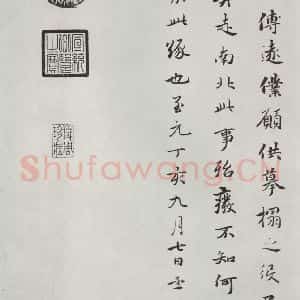 傳遠僕願供摹搨之役
走南北此事殆廢不知何
此緣也至元丁亥九月七日
Shufawang.CN